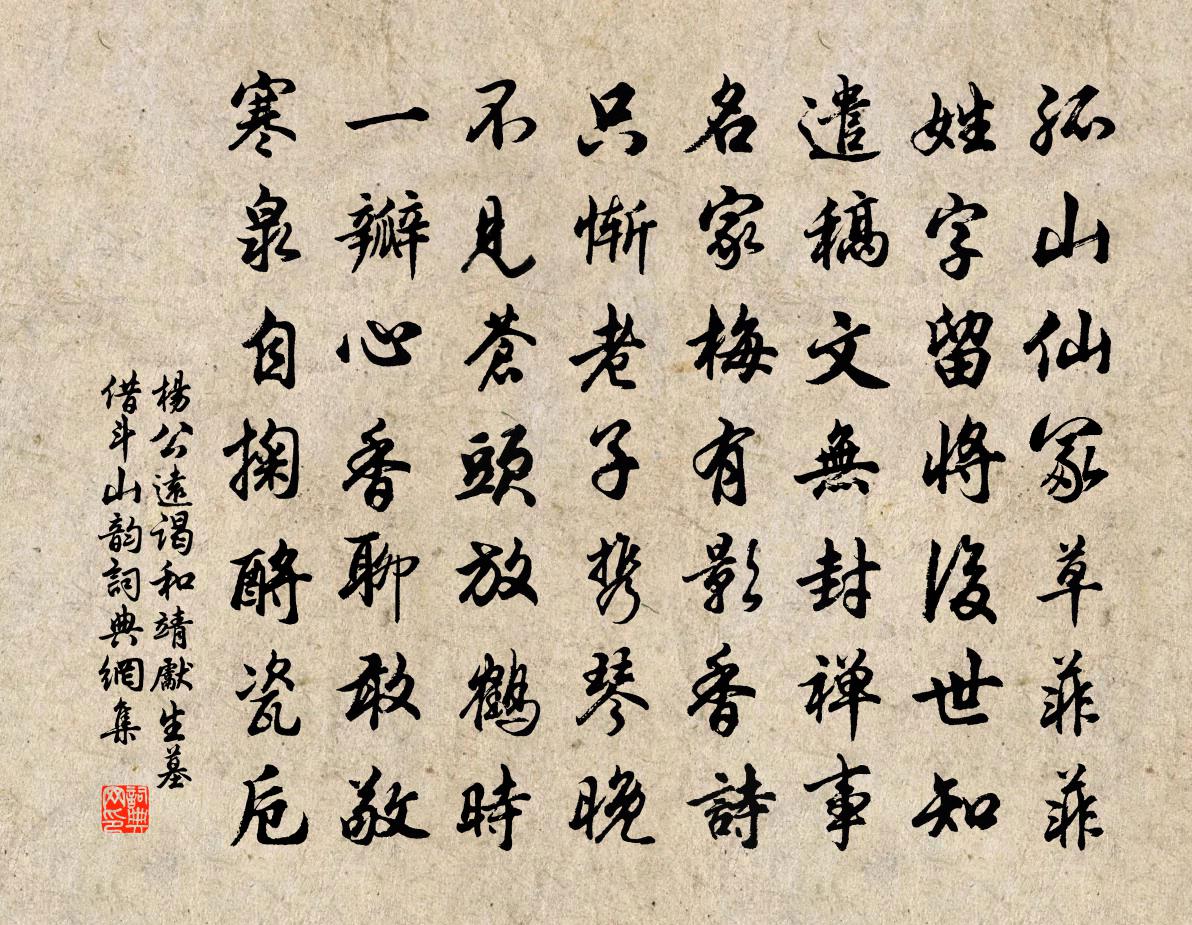 孤山仙冢草菲菲
姓字留將後世知
遣稿文無封禅事
名家梅有影香詩
只慚老子携琴晚
不見蒼頭放鶴時
一瓣心香聊敢敬
寒泉自掬酹瓷卮
楊公遠謁和靖獻生墓
借斗山韵詞典網集
詞典
网印